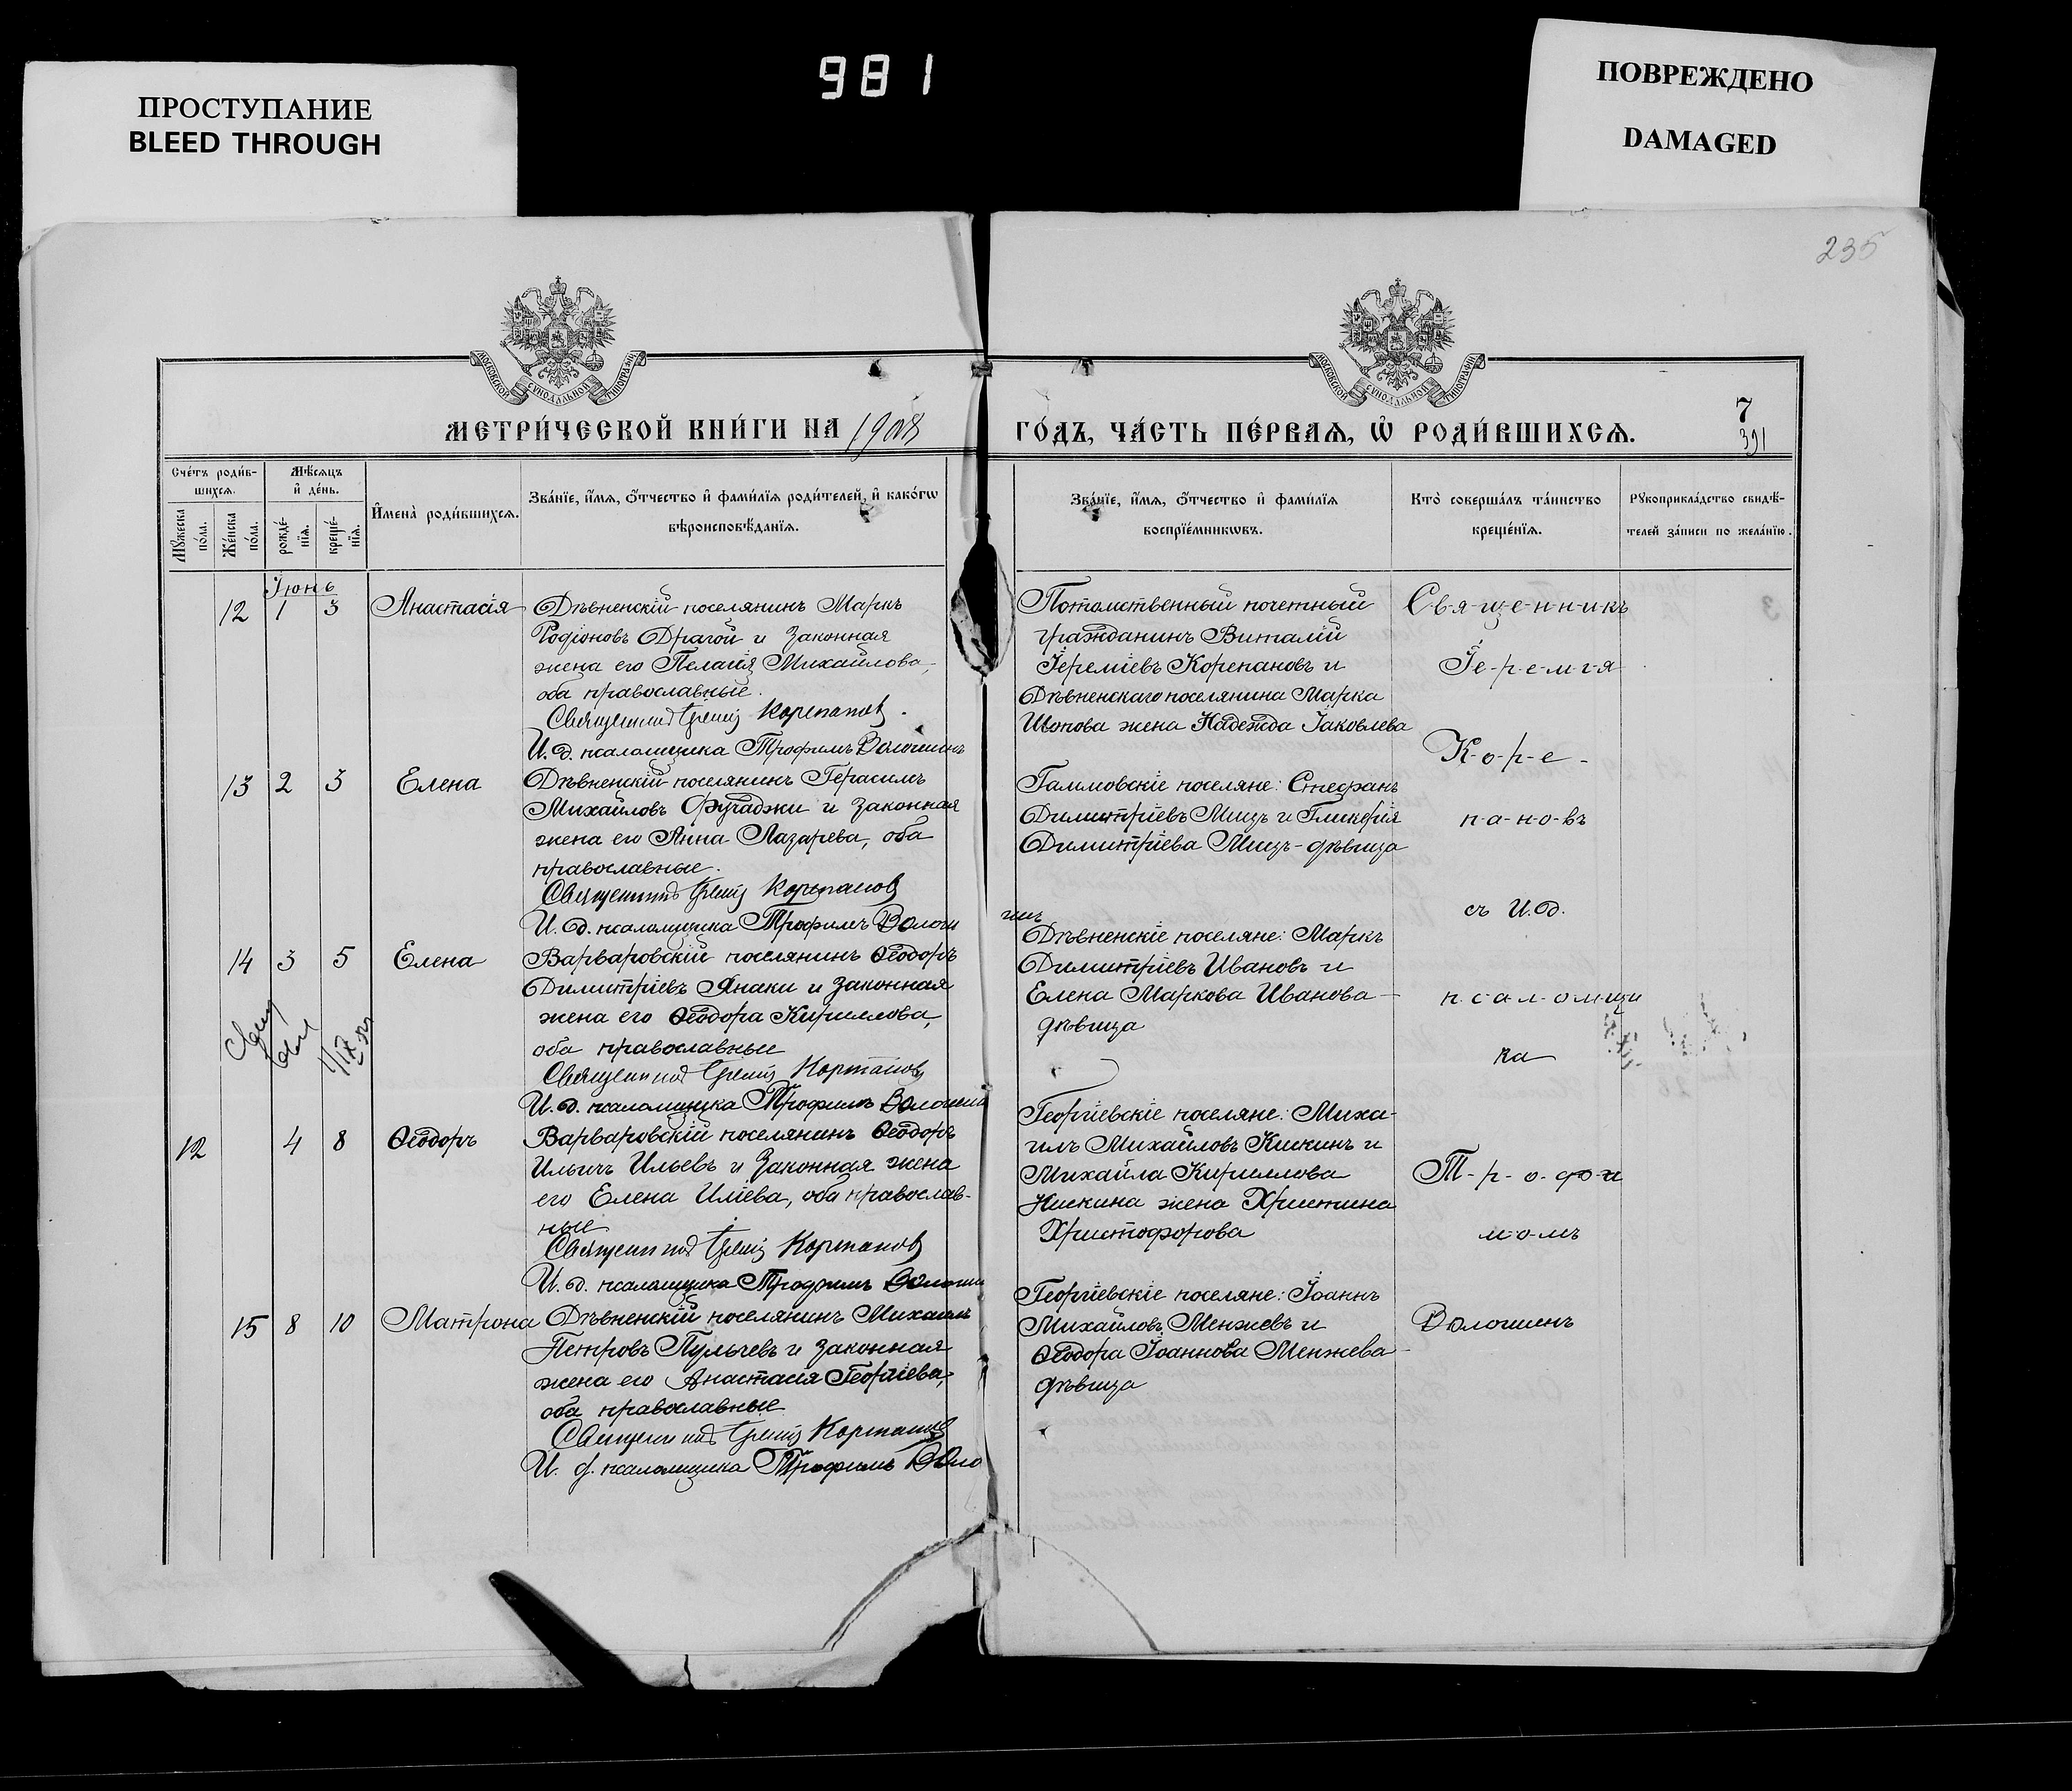 981
ПРОСТУПАНИЕ
BLEED THROUGH
ПОВРЕЖДЕНО
DAMAGED
235
МОСКОВСКОЙ СѴНОДАЛЬНОЙ ТИПОГРАФИИ
МОСКОВСКОЙ СѴНОДАЛЬНОЙ ТИПОГРАФИИ
МЕТРИ́ЧЕСКОЙ КНИ́ГИ НА 1908
ГО́ДЪ, ЧА́СТЬ ПЕ́РВАѦ, Ѡ҆ РОДИ́ВШИХСѦ.
7
391
Сче́тъ роди́в-
шихсѧ.
Мꙋ́жеска по́ла.
Же́нска по́ла.
Мѣ́сѧцъ и҆ де́нь.
рожде́-нїѧ.
креще́-нїѧ.
И҆мена̀ роди́вшихсѧ.
Зва́нїе, и҆́мѧ, ѻ҆́тчество и҆ фами́лїѧ роди́телей, и҆ како́гѡ
вѣроисповѣ́данїѧ.
Зва́нїе, и҆́мѧ, ѻ҆́тчество и҆ фами́лїѧ
воспрїе́мникѡвъ.
Кто̀ соверша́лъ та́инство
креще́нїѧ.
Рꙋкоприкла́дство свидѣ́-
телей за́писи по жела́нїю.
Іюнь
12 1 3 Анастасія
Дѣвненскій поселянинъ Маркъ
Родіоновъ Драгой и законная
жена его Пелагія Михайлова,
оба православные.
Священникъ Іеремія Корепановъ.
И. д. псаломщика Трофимъ Волошинъ
Потомственный почетный
гражданинъ Виталій
Іереміевъ Корепановъ и
Дѣвненскаго поселянина Марка
жена Надежда Іаковлева
13 2 3 Елена
Дѣвненскій поселянинъ Герасимъ
Михайловъ Фучаджи и законная
жена его Анна Лазарева, оба
православные.
Священникъ Іеремія Корепановъ
И. д. псаломщика Трофимъ Волоши
шнъ
Галмовскіе поселяне: Стефанъ
Димитріевъ Мицъ и Гликерія
Димитріева Мицъ - дѣвица
14 3 5 Елена
Варваровскій поселянинъ Ѳеодоръ
Димитріевъ Янаки и законная
жена его Ѳеодора Кириллова,
оба православные
Священникъ Іеремія Корепановъ
И. д. псаломщика Трофимъ Волошин
Дѣвненскіе поселяне: Маркъ
Димитріевъ Ивановъ и
Елена Маркова Иванова -
дѣвица
12 4 8 Ѳеодоръ
Варваровскій поселянинъ Ѳеодоръ
Ильичъ Ильевъ и законная жена
его Елена Иліева, оба православ-
ные
Священникъ Іеремія Корепановъ
И. д. псаломщика Трофимъ Волоши
Георгіевскіе поселяне: Миха-
илъ Михайловъ Кискинъ и
Михаила Кириллова
Кискина жена Христина
Христофорова
15 8 10 Матрона
Дѣвненскій поселянинъ Михаилъ
Петровъ Пулычевъ и законная
жена его Анастасія Георгіева,
оба православные
Священникъ Іеремія Корепановъ
И. д. псаломщика Трофимъ Воло
Георгіевскіе поселяне: Іоаннъ
Михайловъ Менжевъ и
Ѳеодора Іоаннова Менжева -
дѣвица
С-в-я-щ-е-н-н-и-къ
Іе-р-е-м-і-я
К-о-р-е-
п-а-н-о-въ
съ И. д.
п-с-а-л-о-м-щи
ка
Т-р-о-ф-и
м-о-мъ
Волошинъ